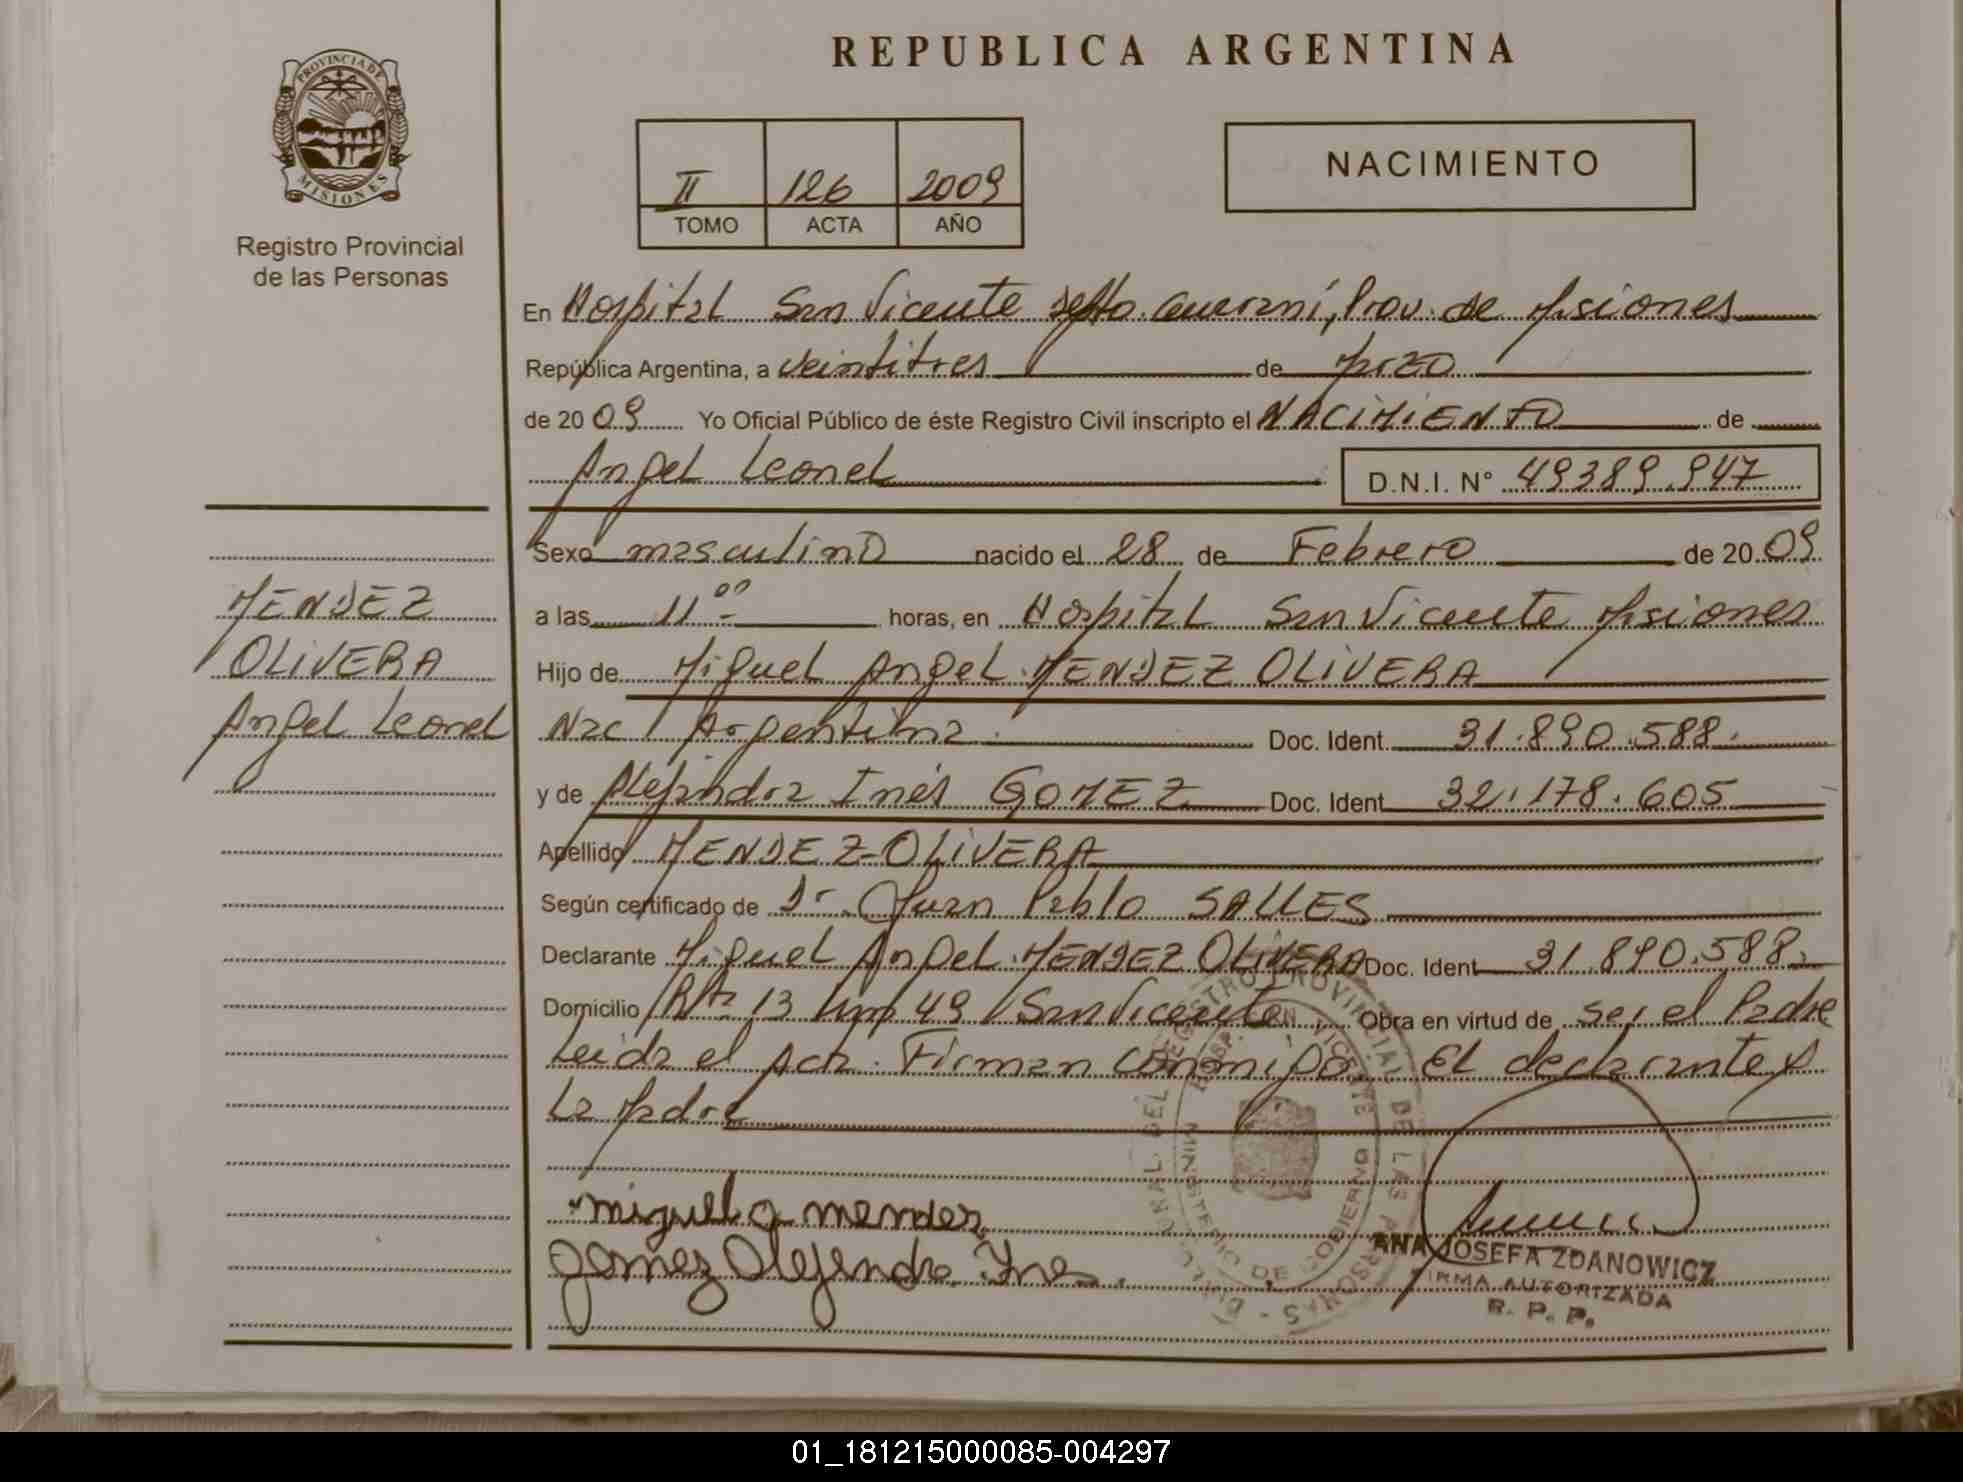 REPUBLICA ARGENTINA
PROVINCIA DE
MISIONES
Registro Provincial
de las Personas
II 126 2009
TOMO ACTA AÑO
NACIMIENTO
En Hospital San Vicente Depto. Guarani, Prov. de Misiones
República Argentina, a veintitres de Marzo
de 2009 Yo Oficial Público de éste Registro Civil inscripto el NACIMIENTO de
Angel Leonel D.N.I. N° 49389.947
Sexo masculino nacido el 28 de Febrero de 2009
a las 11 00 horas, en Hospital San Vicente Misiones
Hijo de Miguel Angel MENDEZ OLIVERA
Nac Argentina Doc. Ident. 31.890.588.
y de Alejandra Inés GOMEZ Doc. Ident 32.178.605
Apellido MENDEZ OLIVERA
Según certificado de Dr. Juan Pablo SALLES
Declarante Miguel Angel MENDEZ OLIVERA Doc. Ident 31.890.588.
Domicilio Rta 13 km 49 San Vicente Obra en virtud de ser el Padre
Leida el Acta. Firman conmigo El declarante y
La Madre
MENDEZ
OLIVERA
Angel Leonel
miguel a mendez
gomez Alejandra Ine
REGISTRO PROVINCIAL DE LAS PERSONAS
HOSP. SAN VICENTE
MINISTERIO DE GOBIERNO
ANA JOSEFA ZDANOWICZ
FIRMA AUTORIZADA
R. P. P.
01_181215000085-004297